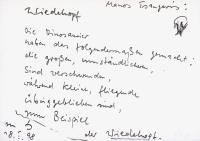 Manos Tsangaris:
Wiedehopf
Die Dinosaurier
haben das folgendermaßen gemacht:
die großen, umständlichen,
sind verschwunden,
während kleine, fliegende
übriggeblieben sind,
zum Beispiel
der Wiedehopf.